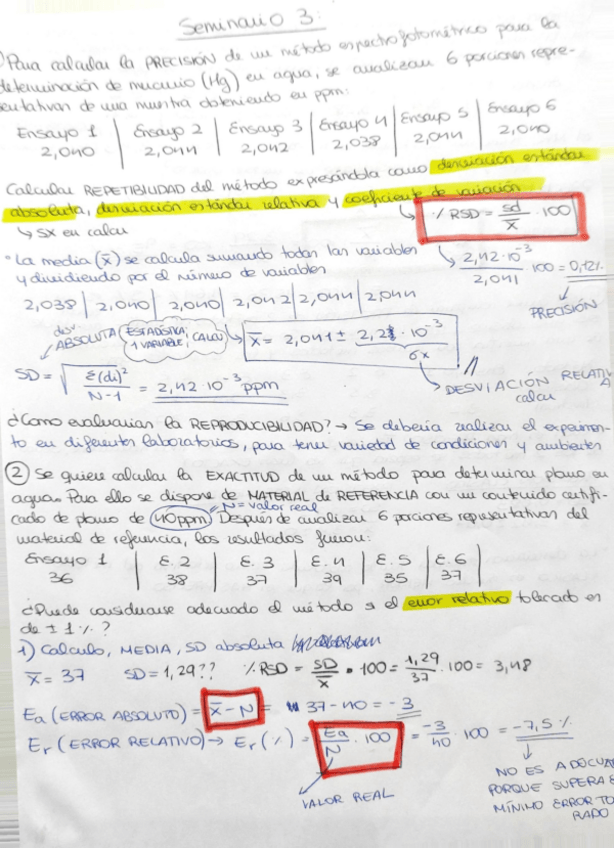 Seminario 3:
Para calcular la PRECISIÓN de un método espectrofotométrico para la
determinación de mercurio (Hg) en agua, se analizan 6 porciones repre-
sentativas de una muestra obteniendo en ppm:
Ensayo 1 | Ensayo 2 | Ensayo 3 | Ensayo 4 | Ensayo 5 | Ensayo 6
2,040 | 2,044 | 2,042 | 2,038 | 2,044 | 2,040
Calcular REPETIBILIDAD del método expresándola como desviación estándar
absoluta, desviación estándar relativa y coeficiente de variación
↳ sx en calcu
↳ % RSD = sd/x̄ · 100
• La media (x̄) se calcula sumando todas las variables
y dividiendo por el número de variables
↳ 2,42·10⁻³/2,041 · 100 = 0,12%
↓ PRECISIÓN
2,038 | 2,040 | 2,040 | 2,042 | 2,044 | 2,044
desv. ABSOLUTA (ESTADÍSTICA, 1 VARIABLE, CALCU)
↳ x̄ = 2,041 ± 2,21 · 10⁻³
σx
↳ DESVIACIÓN RELATIVA
calcu
SD = √ Σ(di)²/N-1 = 2,42·10⁻³ ppm
¿Como evaluarian la REPRODUCIBILIDAD? → Se debería realizar el experimen-
to en diferentes laboratorios, para tener variedad de condiciones y ambientes
② Se quiere calcular la EXACTITUD de un método para determinar plomo en
agua. Para ello se dispone de MATERIAL de REFERENCIA con un contenido certifi-
↳ N = valor real
cado de plomo de 40ppm. Después de analizar 6 porciones representativas del
material de referencia, los resultados fueron:
Ensayo 1 | E. 2 | E. 3 | E. 4 | E. 5 | E. 6
36 | 38 | 37 | 39 | 35 | 37
¿Puede considerarse adecuado el método si el error relativo tolerado es
de ± 1%?
1) Calculo, MEDIA, SD absoluta
x̄ = 37 SD = 1,29?? % RSD = SD/x̄ · 100 = 1,29/37 · 100 = 3,48
Ea (ERROR ABSOLUTO) = x̄ - N = 37 - 40 = -3
Er (ERROR RELATIVO) → Er (%) = Ea/N · 100 = -3/40 · 100 = -7,5 %
VALOR REAL
↓ NO ES ADECUA
PORQUE SUPERA E
MÍNIMO ERROR TO
RADO